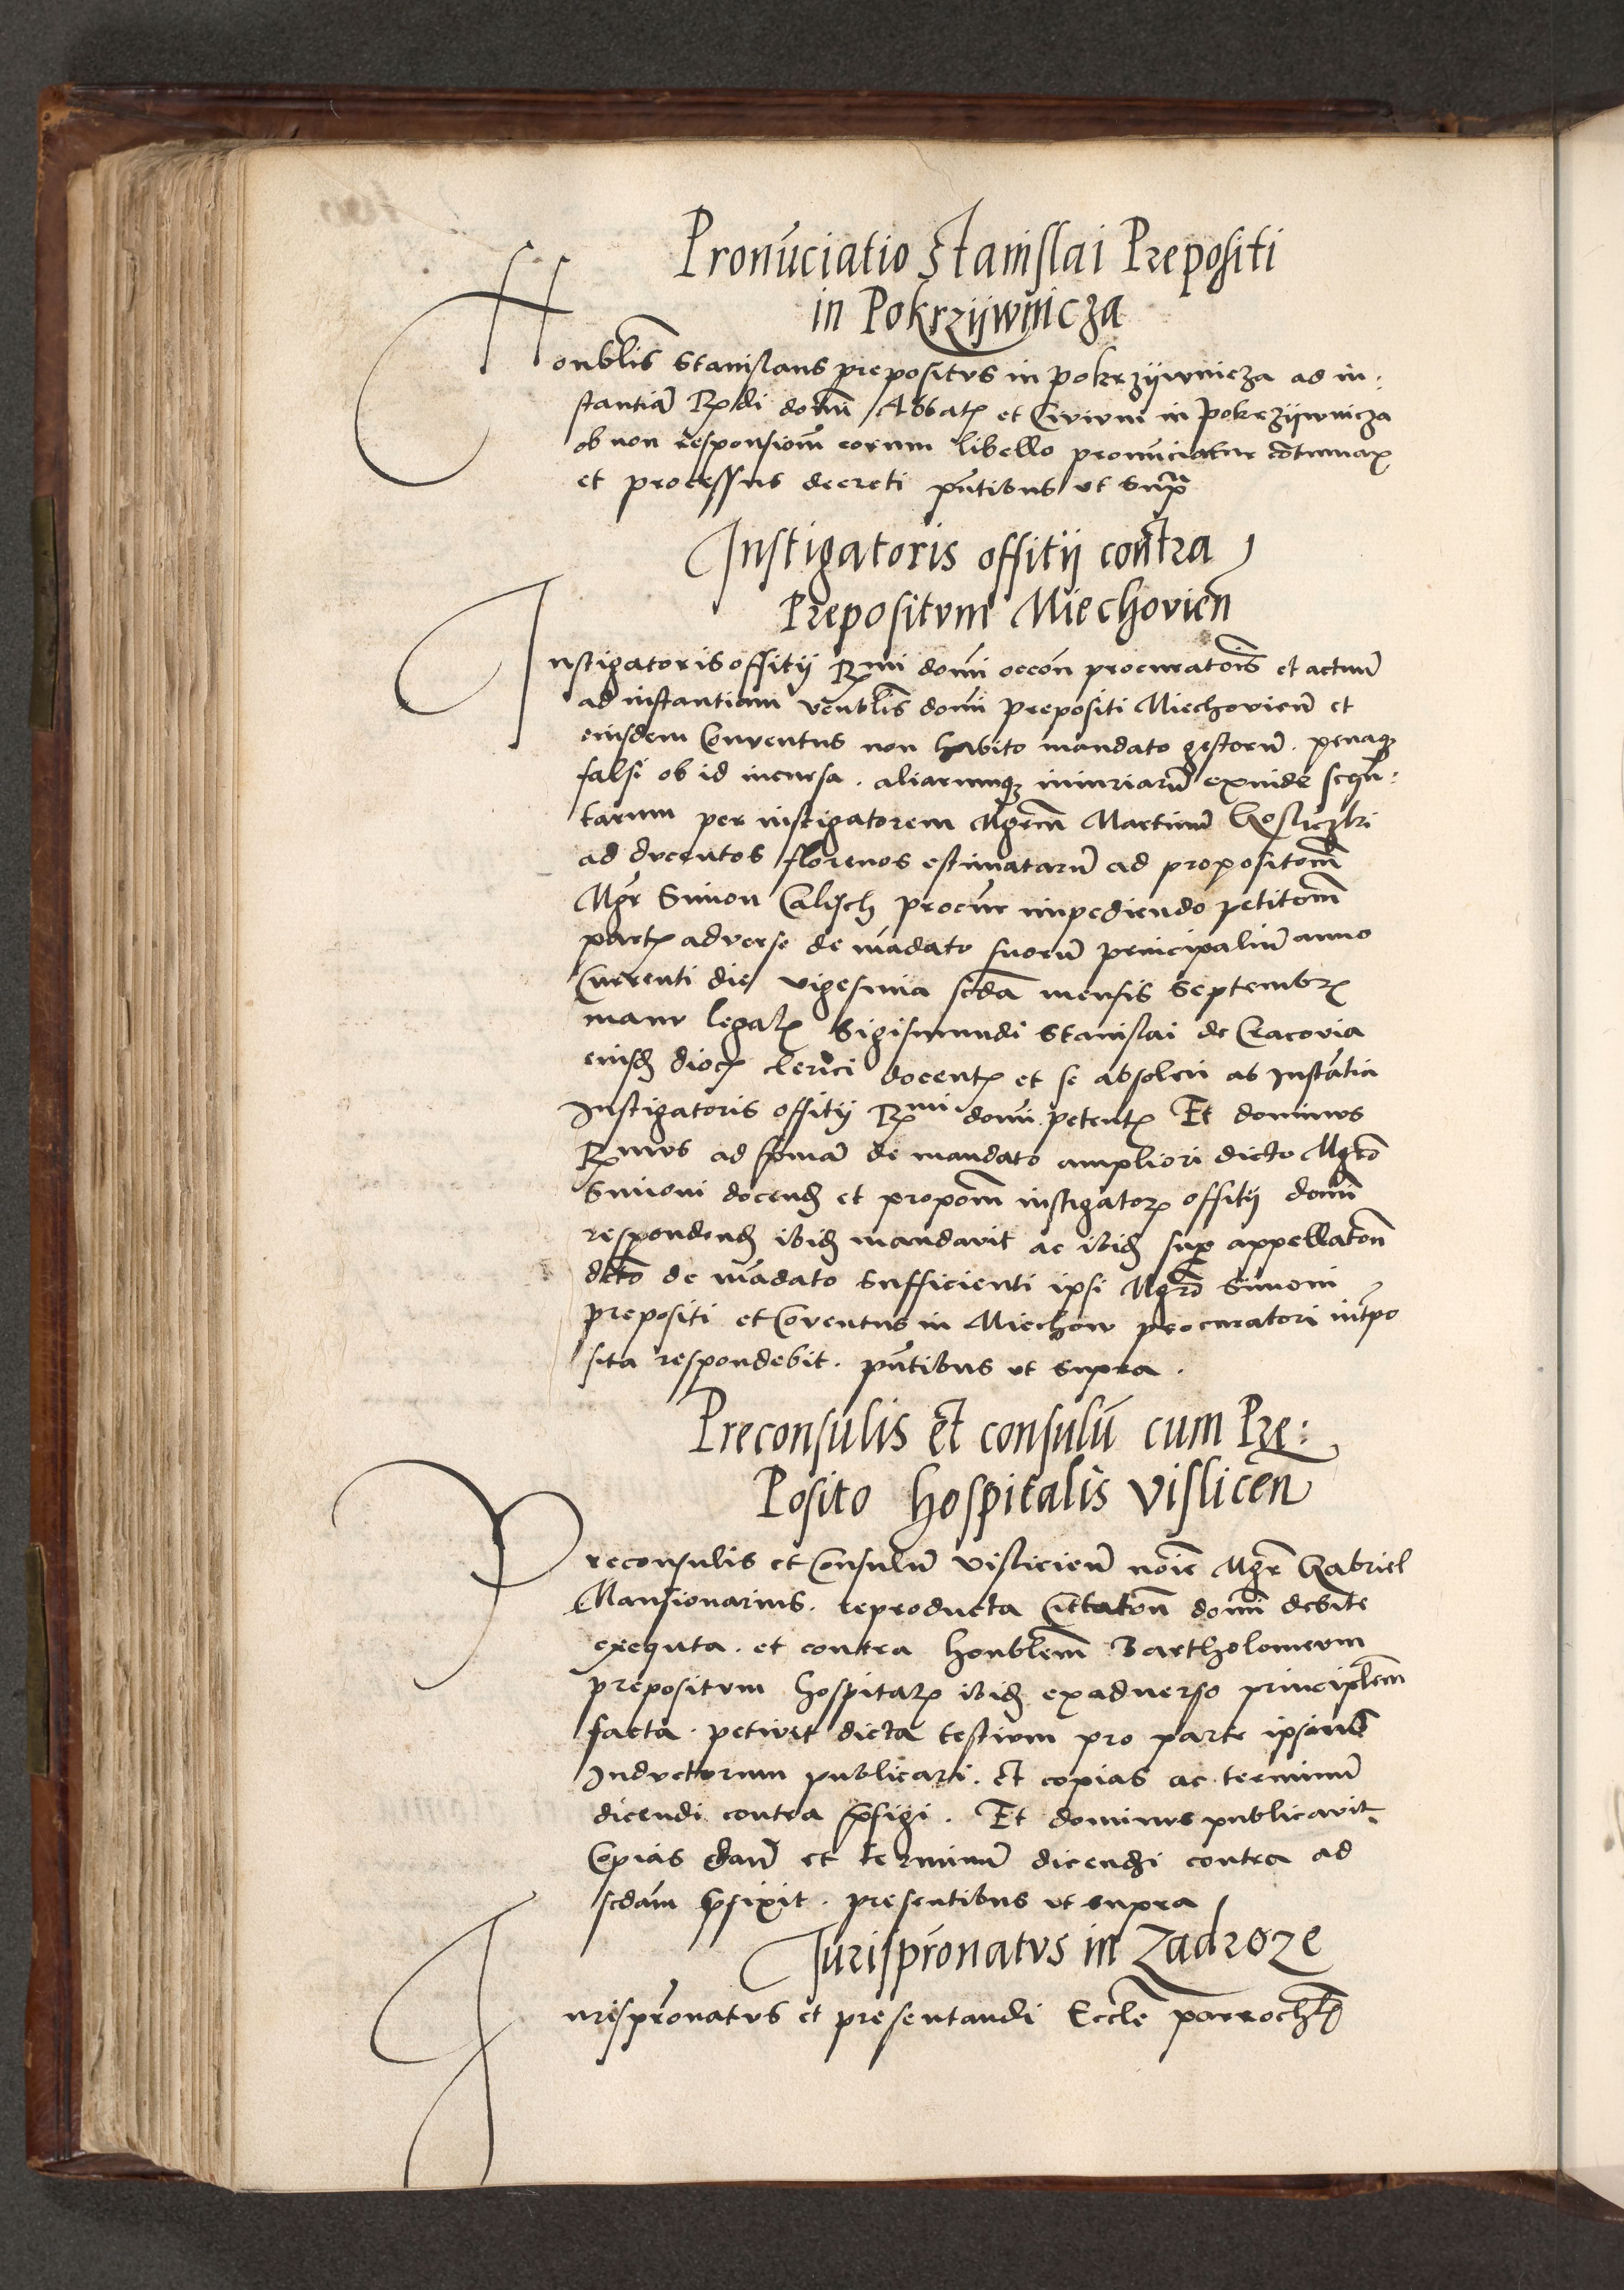 Pronūciatio Stanislai Prepositi
in Pokrzijwnicza
Honblis Stanislaus prepositus in Pokrzijwnicza ad in:
stantiā Rdi domi Abbatis et Civium in Pokrzijwnicza
ob non responsionē eorum libello pronūciatur cōtumax
et processus decreti pūtibus ut supra
Instigatoris offitij contra
Prepositum Miechovien
Instigatoris offitij Rmi domi occōn procuratōis et actuū
ad instantiam venblis domi prepositi Miechovien et
eiusdem Conventus non habito mandato gestorū . penaq
falsi ob id incursa . aliarumq iniuriarū exinde sequ:
tarum per instigatorem Mgrm Martinū
ad ducentos florenos estimatarū ad propositōem
Mgr Simon Calisch procur impediendo petitōem
partis adverse de mādato suorū principaliū anno
Currenti die vigesima scda mensis Septembris
manu legalis Sigismundi Stanislai de Cracovia
eiusd dioc clerici docentis et se absolvi ab instātia
Instigatoris offitij Rmi domi petentis Et dominus
Rmus ad primā de mandato ampliori dicto Mgro
Simoni docend et propoēm instigatoris offitij domi
respondend ibid mandavit ac ibid super appellatōn
dcto de mādato sufficienti ipsi Mgro Simoni
prepositi et Cōventus in Miechow procuratori intpo
sita respondebit . pūtibus ut supra .
Preconsulis et consulū cum Pre:
Posito hospitalis vislicen
Preconsulis et Consulū vislicien noie Mgr Gabriel
Mansionarius . reproducta Cittatōn domi debite
exequta . et contra honblem Bartholomeum
prepositum hospitalis ibid exadverso principlem
facta . petivit dicta testium pro parte ipsius
Inductorum publicari . et copias ac terminū
dicendi contra pfigi . Et dominus publicavit
Copias et terminū dicendi contra ad
scdam pfixit . presentibus ut supra
Jurisprōnatus in Zadroze
Jurisprōnatus et presentandi Eccle parrochlis